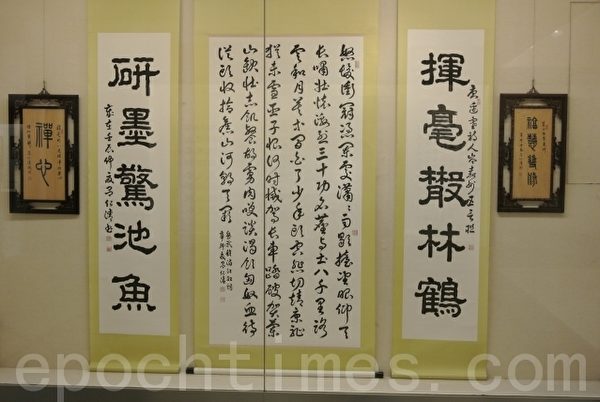 福慧雙修
揮毫散林鶴
怒髮衝冠憑闌處瀟瀟雨歇擡望眼仰天
長嘯壯懷激烈三十功名塵與土八千里路
雲和月莫等閒白了少年頭空悲切靖康恥
猶未雪臣子恨何時滅駕長車踏破賀蘭
山缺壯志飢餐胡虜肉笑談渴飲匈奴血待
從頭收拾舊山河朝天闕
岳武穆滿江紅詞
研墨驚池魚
禪心
epochtimes.com